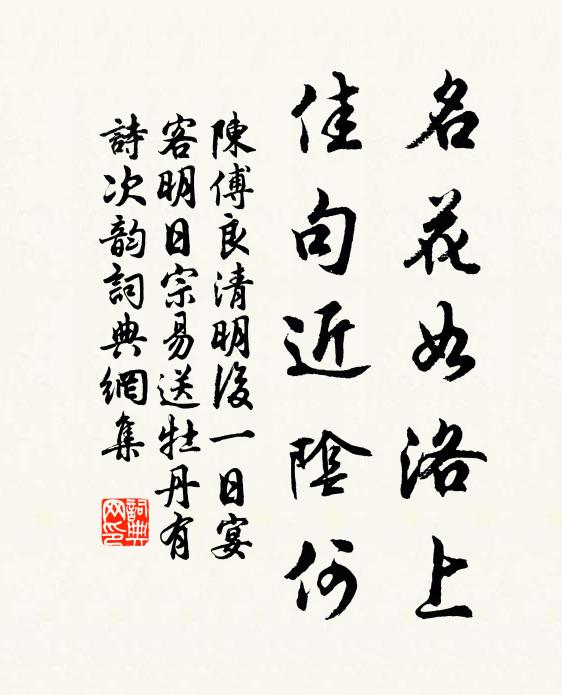 名花如洛上
佳句近陰何
陳傅良清明後一日宴
客明日宗易送牡丹有
詩次韵詞典網集
詞典网印